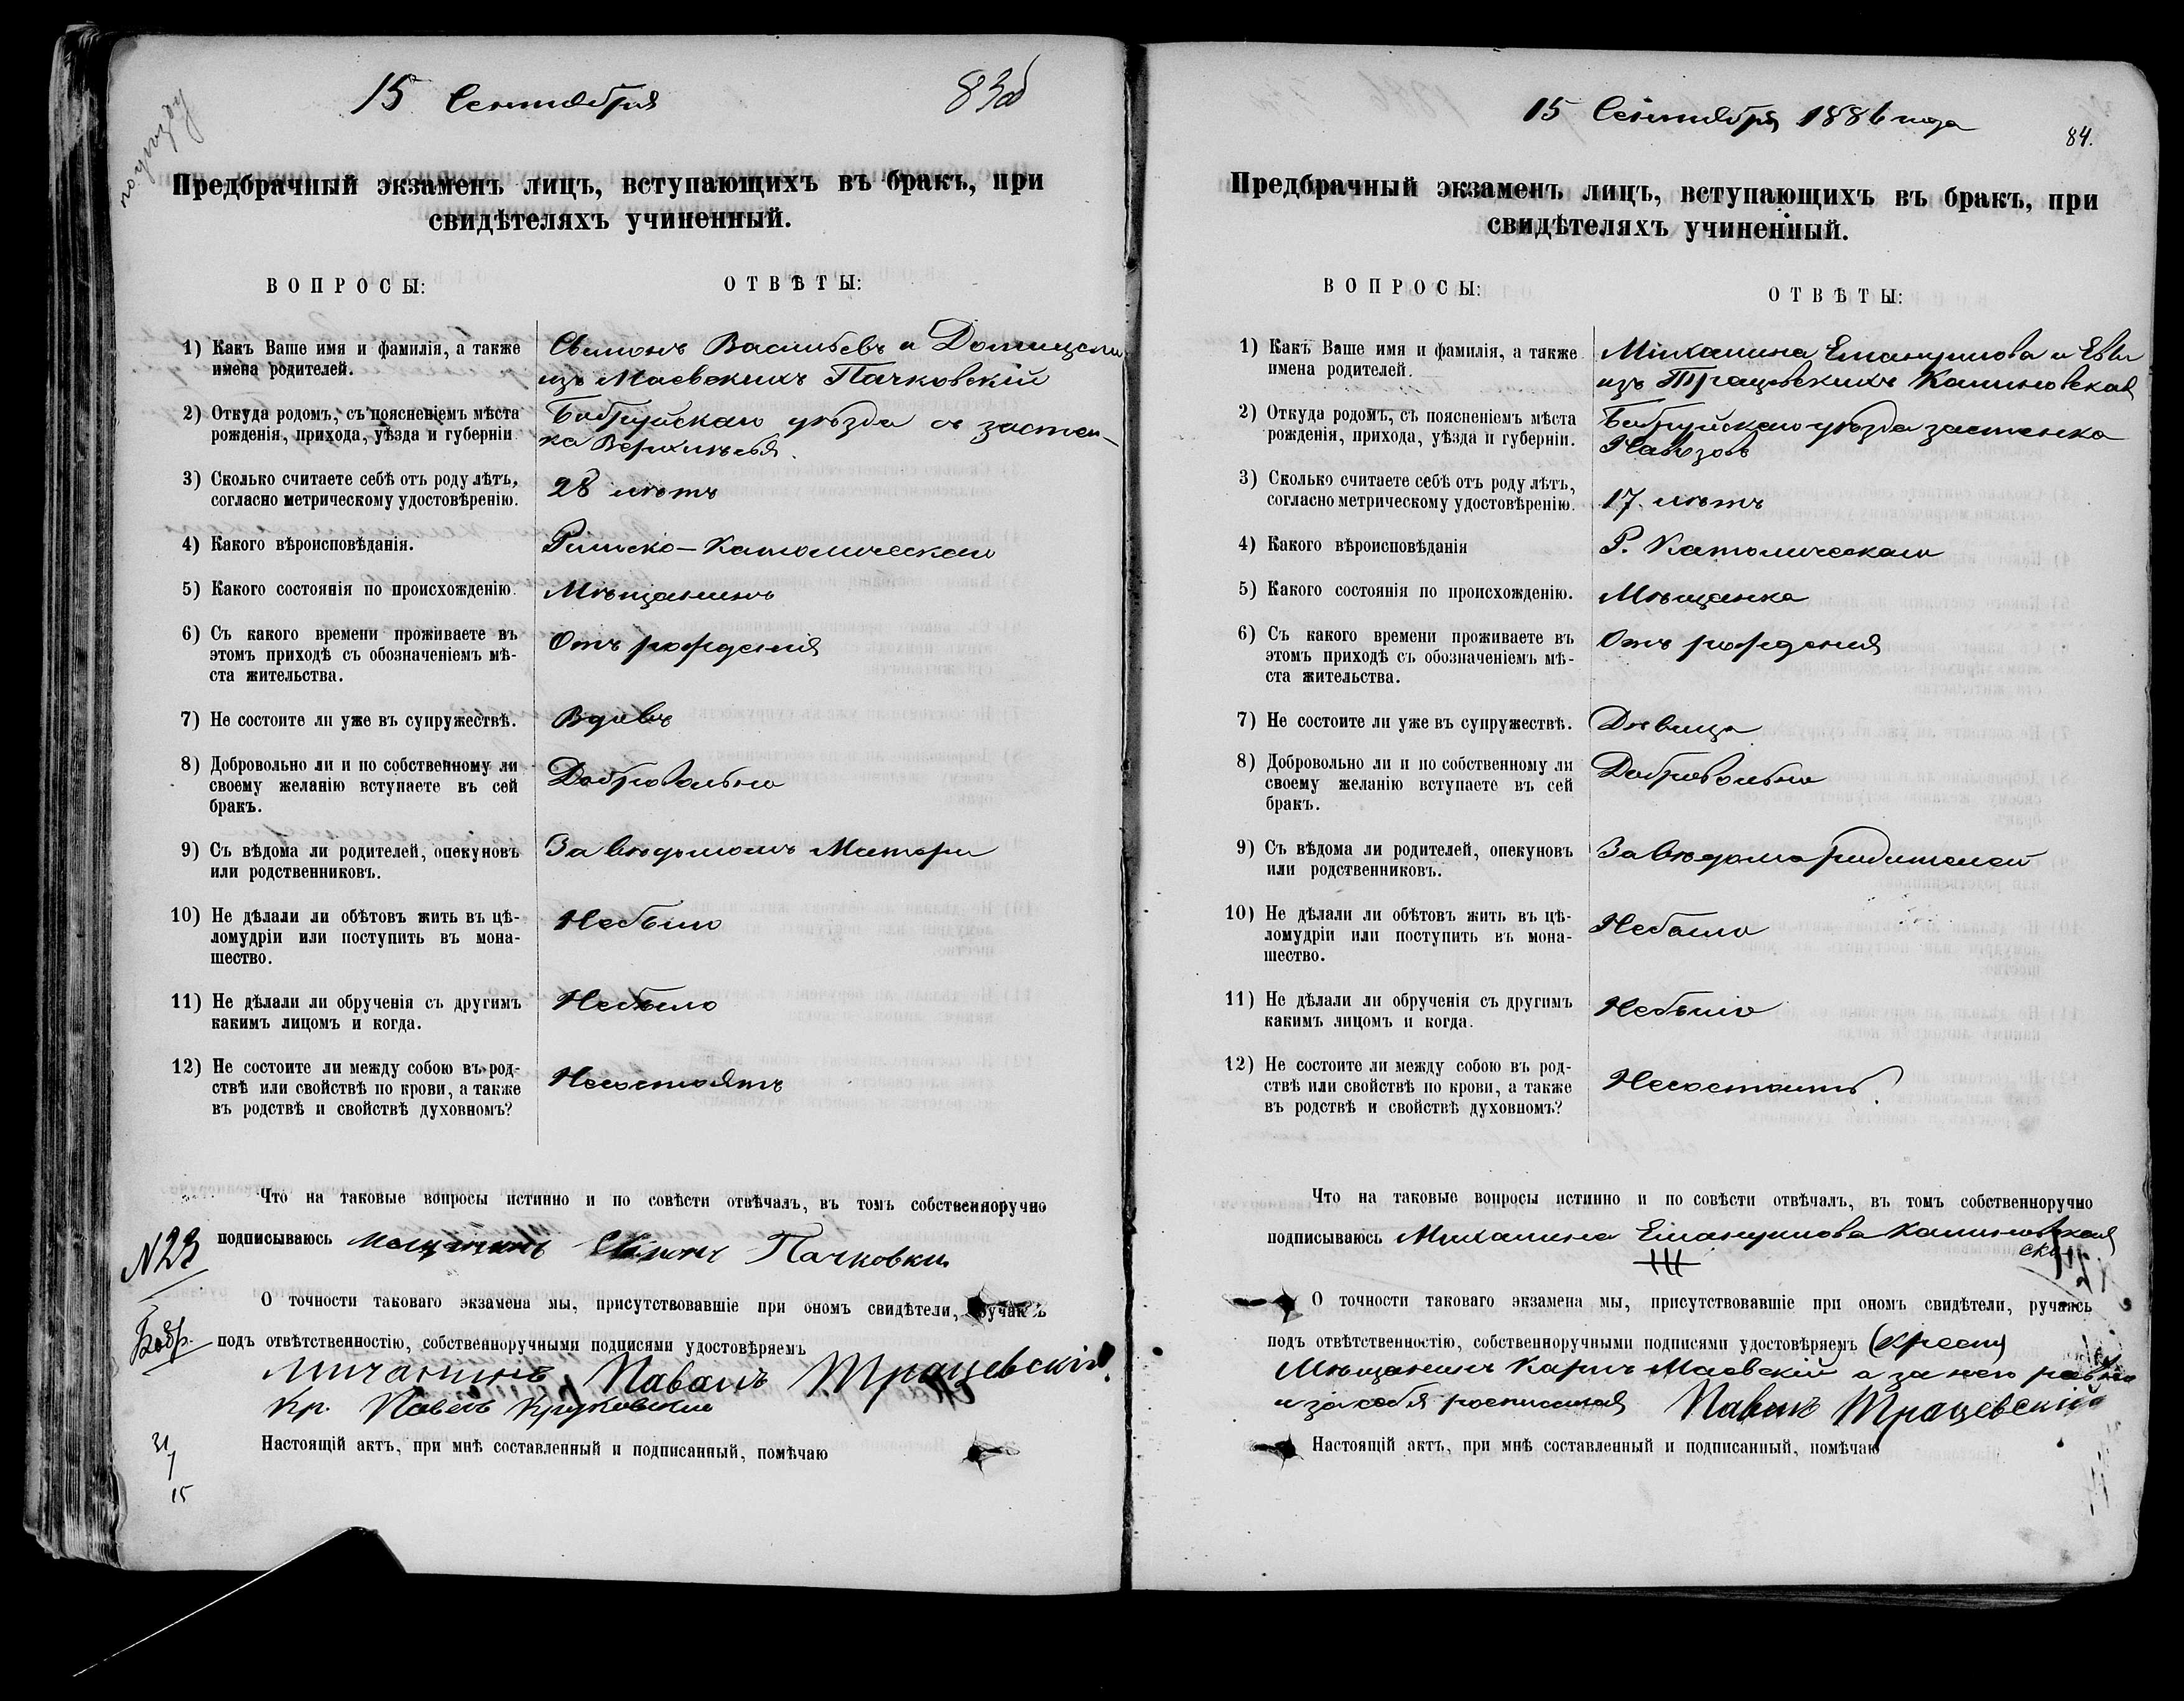 15 Сентября
83об
Предбрачный экзаменъ лицъ, вступающихъ въ бракъ, при
свидѣтеляхъ учиненный.
ВОПРОСЫ:
ОТВѢТЫ:
1) Какъ Ваше имя и фамилія, а также
имена родителей.
Сымонъ Васильевъ и Домицели
изъ Маевскихъ Пачковскій
2) Откуда родомъ, съ поясненіемъ мѣста
рожденія, прихода, уѣзда и губерніи
Бобруйскаго уѣзда съ застен-
ка
3) Сколько считаете себѣ отъ роду лѣтъ,
согласно метрическому удостовѣренію.
28 лѣтъ
4) Какого вѣроисповѣданія.
Римско-Католическаго
5) Какого состоянія по происхожденію.
Мѣщанинъ
6) Съ какого времени проживаете въ
этомъ приходѣ съ обозначеніемъ мѣ-
ста жительства.
Отъ рожденія
7) Не состоите ли уже въ супружествѣ.
Вдовъ
8) Добровольно ли и по собственному ли
своему желанію вступаете въ сей
бракъ.
Добровольно
9) Съ вѣдома ли родителей, опекуновъ
или родственниковъ.
За вѣдомомъ Матери
10) Не дѣлали ли обѣтовъ жить въ цѣ-
ломудріи или поступить въ мона-
шество.
Небыло
11) Не дѣлали ли обрученія съ другимъ
какимъ лицомъ и когда.
Небыло
12) Не состоите ли между собою въ род-
ствѣ или свойствѣ по крови, а также
въ родствѣ и свойствѣ духовномъ?
Несостоятъ
Что на таковые вопросы истинно и по совѣсти отвѣчалъ, въ томъ собственноручно
подписываюсь Пачковки
N23
О точности таковаго экзамена мы, присутствовавшіе при ономъ свидѣтели, ручаясь
Бобр.
подъ отвѣтственностію, собственноручными подписями удостовѣряемъ
Мичанинъ Павалъ Трацевскій
Кр. Павелъ Круковскій
Настоящій актъ, при мнѣ составленный и подписанный, помѣчаю
15
15 Сентября 1886 года
84.
Предбрачный экзаменъ лицъ, вступающихъ въ бракъ, при
свидѣтеляхъ учиненный.
ВОПРОСЫ:
ОТВѢТЫ:
1) Какъ Ваше имя и фамилія, а также
имена родителей.
Михалина Емануилова и Евы
изъ Трацевскихъ Калиновская
2) Откуда родомъ, съ поясненіемъ мѣста
рожденія, прихода, уѣзда и губерніи.
Бобруйскаго уѣзда застенка
3) Сколько считаете себѣ отъ роду лѣтъ,
согласно метрическому удостовѣренію.
17 лѣтъ
4) Какого вѣроисповѣданія
Р. Католическаго
5) Какого состоянія по происхожденію.
Мѣщанка
6) Съ какого времени проживаете въ
этомъ приходѣ съ обозначеніемъ мѣ-
ста жительства.
Отъ рожденія
7) Не состоите ли уже въ супружествѣ.
Дѣвица
8) Добровольно ли и по собственному ли
своему желанію вступаете въ сей
бракъ.
Добровольно
9) Съ вѣдома ли родителей, опекуновъ
или родственниковъ.
За вѣдома родителей
10) Не дѣлали ли обѣтовъ жить въ цѣ-
ломудріи или поступить въ мона-
шество.
Небыло
11) Не дѣлали ли обрученія съ другимъ
какимъ лицомъ и когда.
Небыло
12) Не состоите ли между собою въ род-
ствѣ или свойствѣ по крови, а также
въ родствѣ и свойствѣ духовномъ?
Несостоитъ
Что на таковые вопросы истинно и по совѣсти отвѣчалъ, въ томъ собственноручно
подписываюсь Михалина Емануилова Калиновская
О точности таковаго экзамена мы, присутствовавшіе при ономъ свидѣтели, ручаясь
подъ отвѣтственностію, собственноручными подписями удостовѣряемъ
Мѣщанинъ Карлъ Маевскій а за него
и за себя росписался Павалъ Трацевскій
Настоящій актъ, при мнѣ составленный и подписанный, помѣчаю